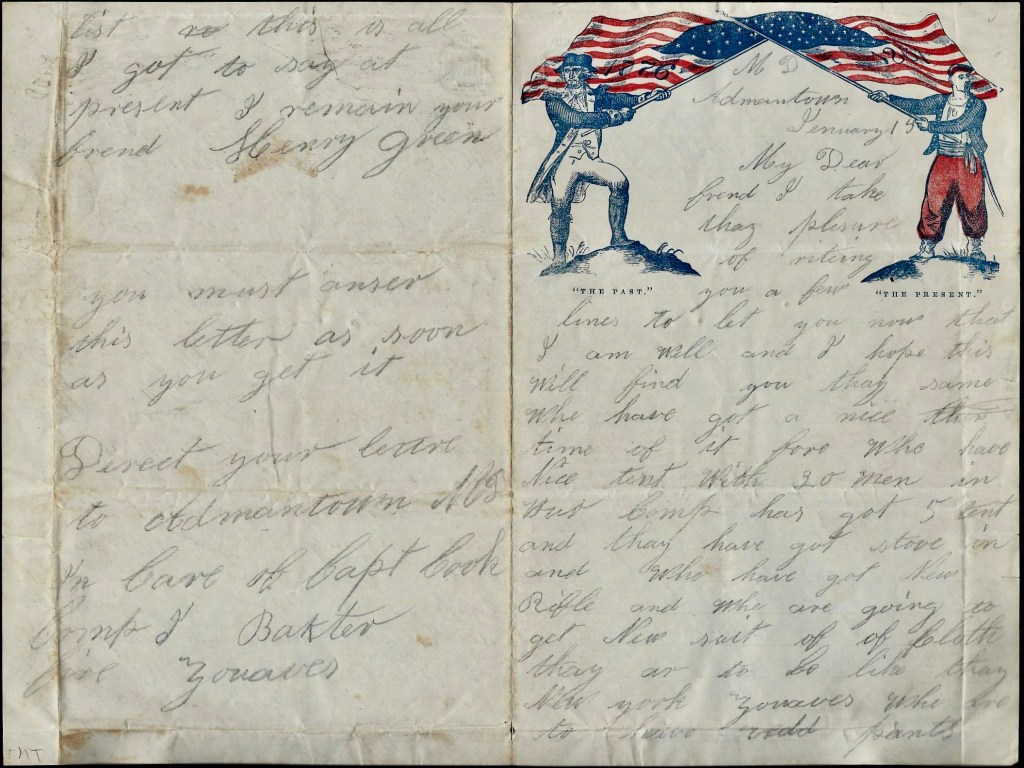 1776
M D
Admantown
Jenuary 19
My Dear
frend I take
thay plesure
of riteing
you a few
"THE PAST."
"THE PRESENT."
lines to let you now that
I am well and I hope this
will find you thay same
Whe have got a nice
time of it fore Whe have
Nice tent With 20 men in
Comp has got 5 tent
and thay have got stove in
and Whe have got New
Rifle and Whe are going to
get New suit of of Cloth
thay ar to be like thay
New york Zouaves Whe are
to have redd pants
list this is all
I got to say at
present I remain your
frend Henry Green
you must anser
this letter as soon
as you get it
Derect your
to Admantown MD
In Care of Capt Cook
Comp I Baxter
fire Zouaves